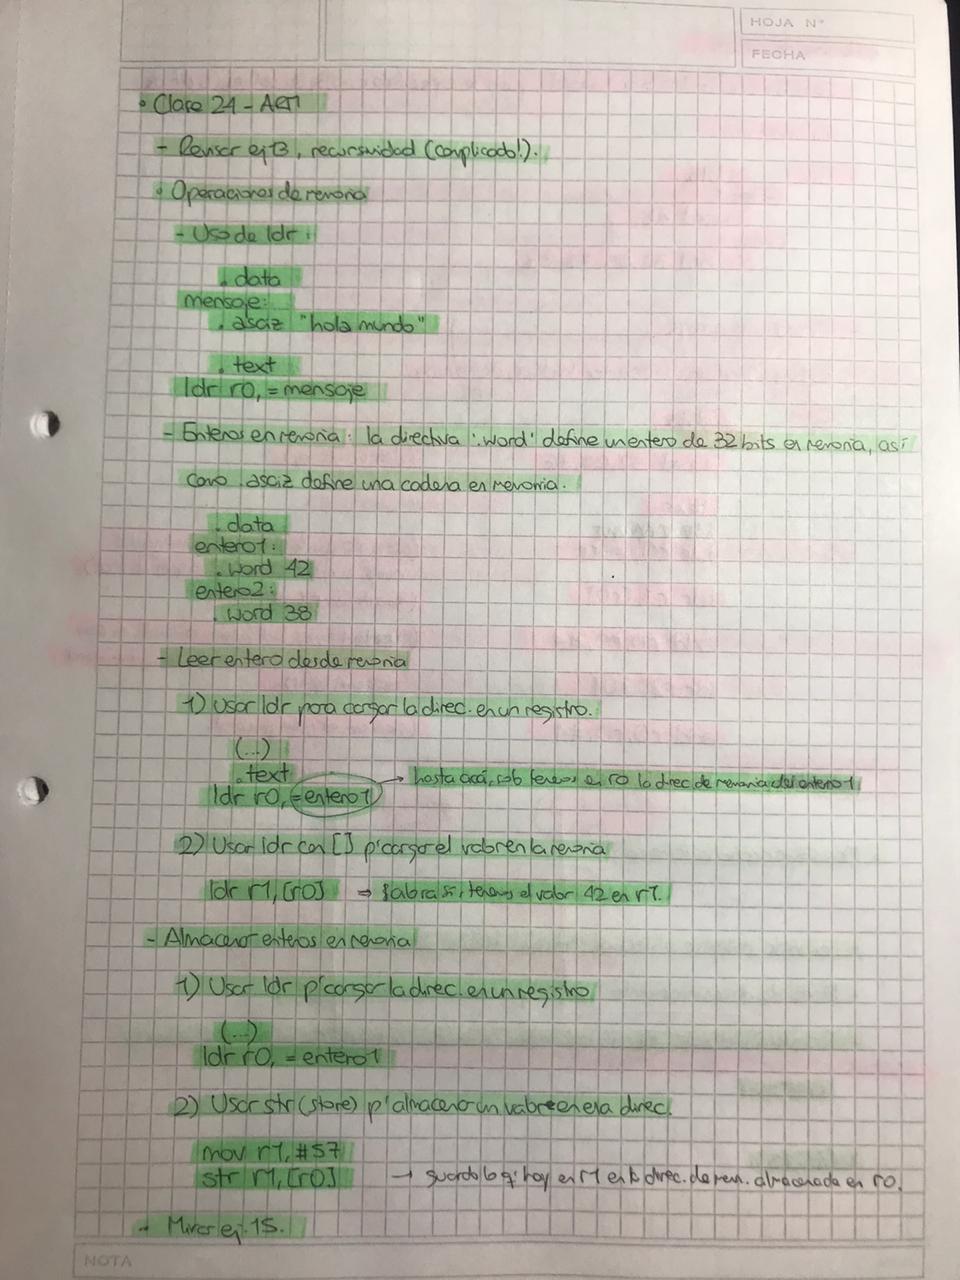 HOJA N°
FECHA
• Clase 24 - ARM
- Revisar ej 13, recursividad (complicado!).
• Operaciones de memoria
- Uso de ldr:
.data
mensaje:
.asciz "hola mundo"
.text
ldr r0, =mensaje
- Enteros en memoria: la directiva '.word' define un entero de 32 bits en memoria, así
como .asciz define una cadena en memoria.
.data
entero1:
.word 42
entero2:
.word 38
- Leer entero desde memoria
1) Usar ldr para cargar la direc. en un registro.
(...)
.text
ldr r0, =entero1 → hasta acá, solo tenemos en r0 la direc de memoria del entero1
2) Usar ldr con [] p' cargar el valor en la memoria
ldr r1, [r0] ⇒ ahora sí, tenemos el valor 42 en r1.
- Almacenar enteros en memoria
1) Usar ldr p' cargar la direc. en un registro
(...)
ldr r0, =entero1
2) Usar str (store) p' almacenar un valor en esa direc.
mov r1, #57
str r1, [r0] → guardo lo q' hay en r1 en la direc. de mem. almacenada en r0.
- Mirar ej. 15.
NOTA